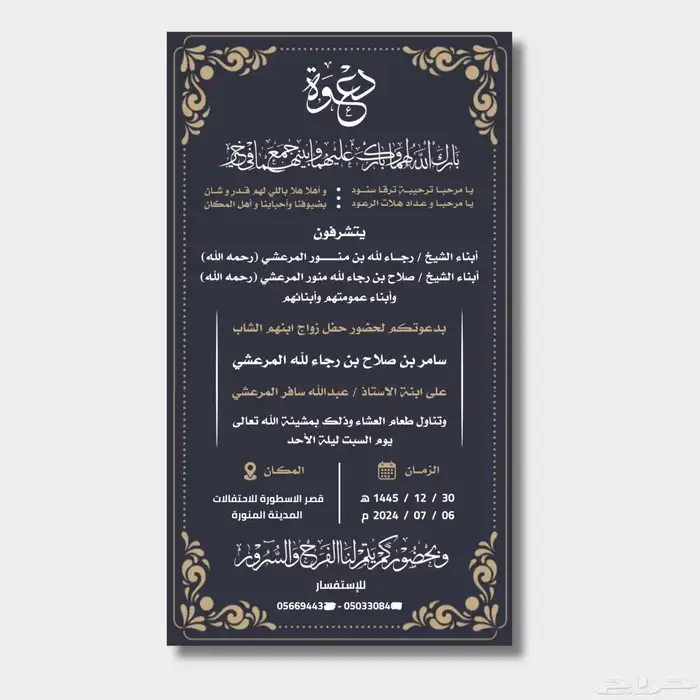 دعوة
بارك الله لهما وبارك عليهما وجمع بينهما في خير
يا مرحبا ترحيبة ترقا سنود : و أهلا هلا باللي لهم قدر و شان
يا مرحبا و عداد هلات الرعود : بضيوفنا وأحبابنا و أهل المكان
يتشرفون
أبناء الشيخ / رجاء لله بن منور المرعشي (رحمه الله)
أبناء الشيخ / صلاح بن رجاء لله منور المرعشي (رحمه الله)
وأبناء عمومتهم وأبنائهم
بدعوتكم لحضور حفل زواج ابنهم الشاب
سامر بن صلاح بن رجاء لله المرعشي
على ابنة الاستاذ / عبدالله سافر المرعشي
وتناول طعام العشاء وذلك بمشيئة الله تعالى
يوم السبت ليلة الأحد
الزمان
30 / 12 / 1445 هـ
06 / 07 / 2024 م
المكان
قصر الاسطورة للاحتفالات
المدينة المنورة
وبحضوركم يتم لنا الفرح والسرور
للإستفسار
05669443 - 05033084
حراج